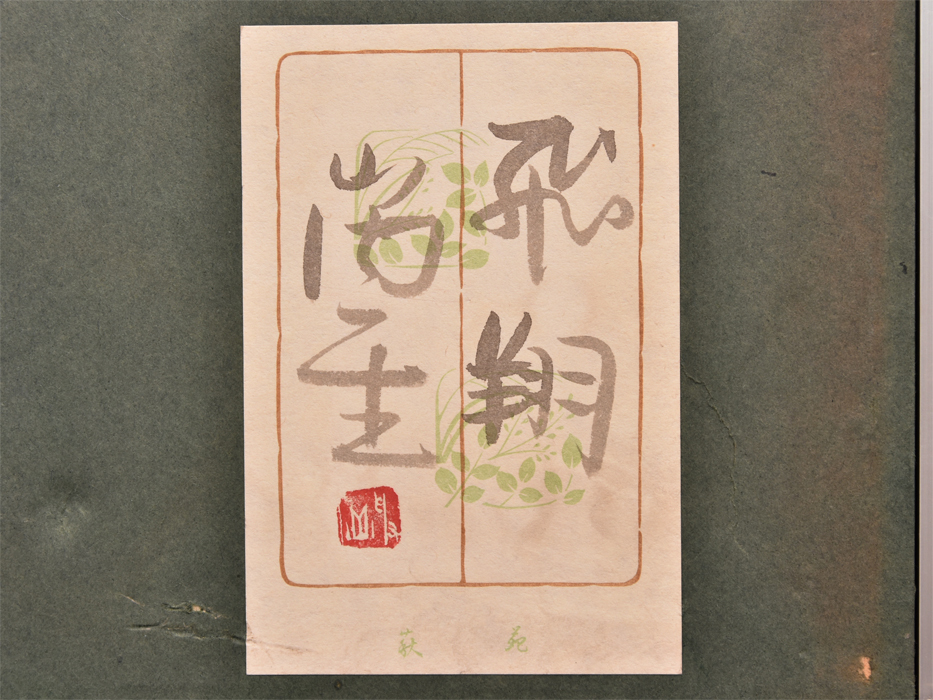 飛翔
尚
萩苑